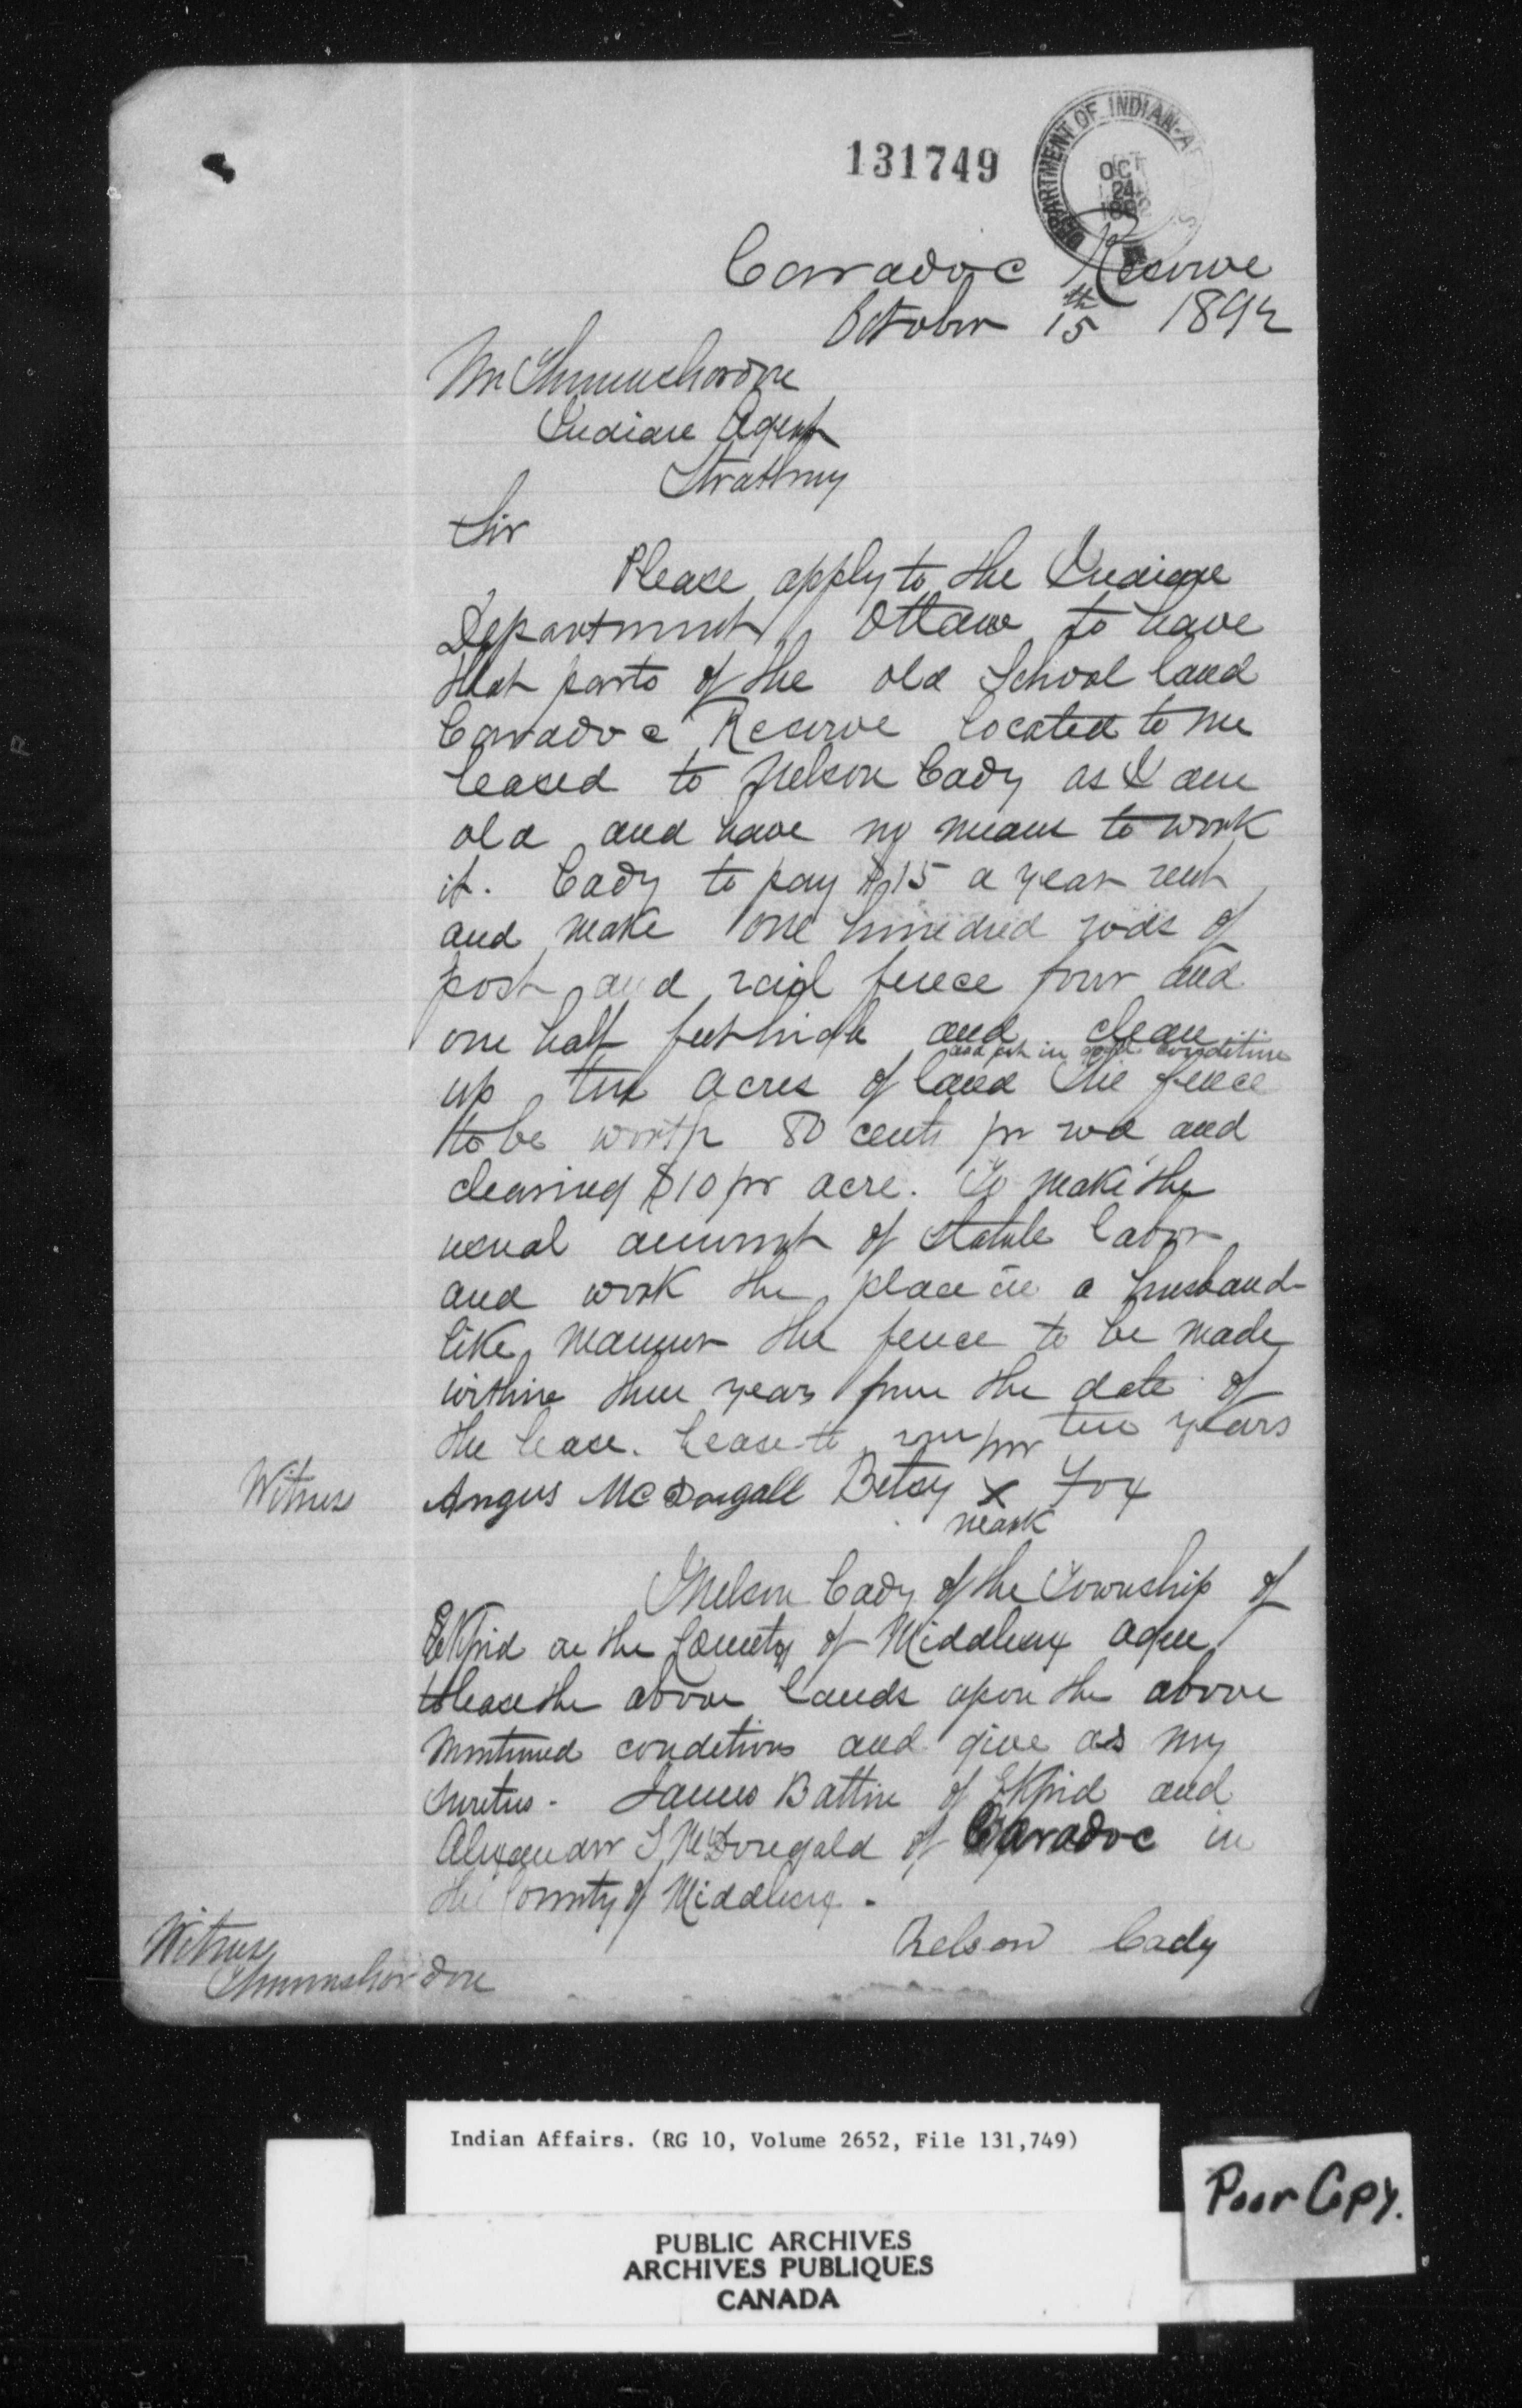 131749
DEPARTMENT OF INDIAN
OCT
24
1892
Caradoc Reserve
October 15th 1892
Indian Agent
Strathroy
Sir
Please apply to the Indian
Department Ottawa to have
that parts of the old School land
Caradoc Reserve located to me
leased to Nelson Cady as I am
old and have no means to work
it. Cady to pay $15 a year rent
and make one hundred rods of
post and rail fence four and
one half feet high and clean
and put in good condition
up ten acres of land The fence
to be worth 80 cents pr rod and
clearing $10 pr acre. To make the
usual amount of statute labor
and work the place in a husband-
like manner the fence to be made
within three years from the date of
the lease. Lease to run for ten years
Witness Angus McDougall Betsy x Fox
mark
I Nelson Cady of the Township of
Ekfrid in the County of Middlesex agree
to lease the above lands upon the above
mentioned conditions and give as my
sureties. James Battin of Ekfrid and
Alexander McDougald of Caradoc in
the County of Middlesex.
Nelson Cady
Witness
Indian Affairs. (RG 10, Volume 2652, File 131,749)
PUBLIC ARCHIVES
ARCHIVES PUBLIQUES
CANADA
Poor Copy.